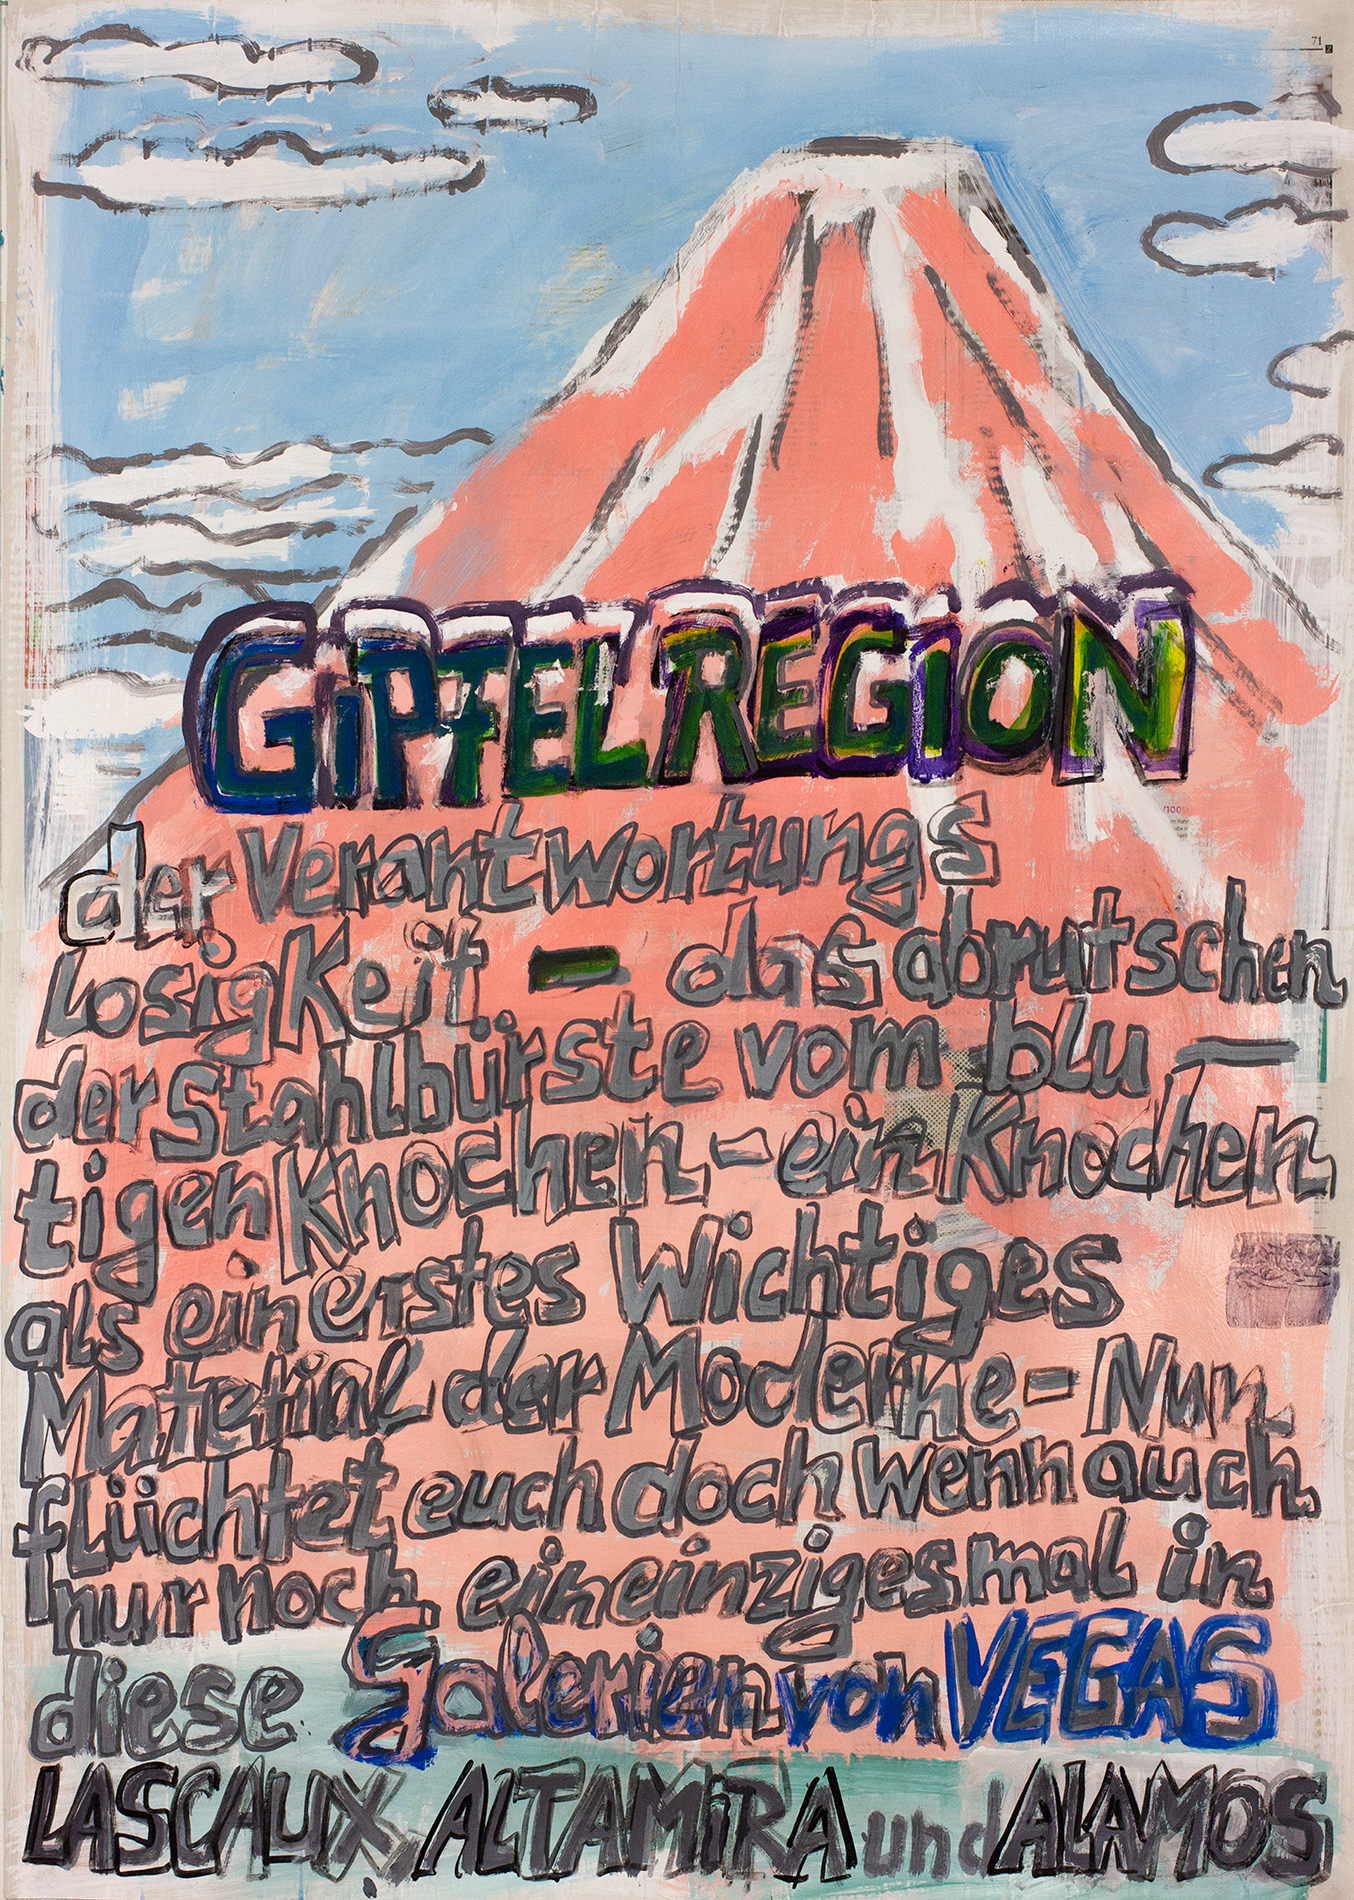 71
GiPfELREGiON
der Verantwortungs
LosigKeit – das abrutschen
der Stahlbürste vom blu –
tigen Knochen – ein Knochen
als ein erstes Wichtiges
Material der Moderne – Nun
fLüchtet euch doch wenn auch
nur noch ein einziges mal in
diese Galerien von VEGAS
LASCAUX, ALTAMiRA und ALAMOS